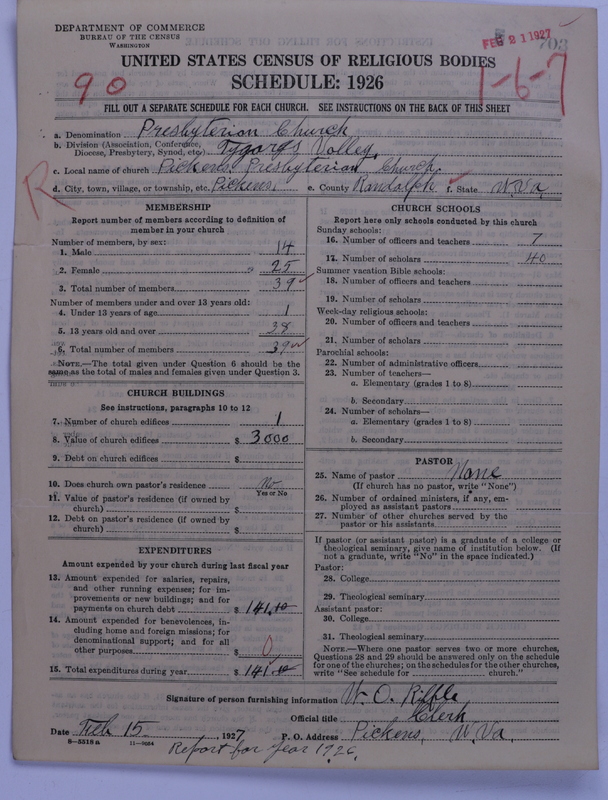 DEPARTMENT OF COMMERCE
BUREAU OF THE CENSUS
WASHINGTON
FEB 21 1927
703
UNITED STATES CENSUS OF RELIGIOUS BODIES
SCHEDULE: 1926
90
1-6-7
FILL OUT A SEPARATE SCHEDULE FOR EACH CHURCH. SEE INSTRUCTIONS ON THE BACK OF THIS SHEET
a. Denomination Presbyterian Church
b. Division (Association, Conference, Diocese, Presbytery, Synod, etc.) Tygarts Valley,
c. Local name of church Pickens Presbyterian Church,
d. City, town, village, or township, etc. Pickens, e. County Randolph f. State W.Va.
R
MEMBERSHIP
Report number of members according to definition of member in your church
Number of members, by sex:
1. Male 14
2. Female 25
3. Total number of members 39
Number of members under and over 13 years old:
4. Under 13 years of age 1
5. 13 years old and over 38
6. Total number of members 39
NOTE.—The total given under Question 6 should be the same as the total of males and females given under Question 3.
CHURCH BUILDINGS
See instructions, paragraphs 10 to 12
7. Number of church edifices 1
8. Value of church edifices $ 3000
9. Debt on church edifices $
10. Does church own pastor's residence No
Yes or No
11. Value of pastor's residence (if owned by church) $
12. Debt on pastor's residence (if owned by church) $
EXPENDITURES
Amount expended by your church during last fiscal year
13. Amount expended for salaries, repairs, and other running expenses; for improvements or new buildings; and for payments on church debt $ 141.10
14. Amount expended for benevolences, including home and foreign missions; for denominational support; and for all other purposes $ 0
15. Total expenditures during year $ 141.10
CHURCH SCHOOLS
Report here only schools conducted by this church
Sunday schools:
16. Number of officers and teachers 7
17. Number of scholars 40
Summer vacation Bible schools:
18. Number of officers and teachers
19. Number of scholars
Week-day religious schools:
20. Number of officers and teachers
21. Number of scholars
Parochial schools:
22. Number of administrative officers
23. Number of teachers—
a. Elementary (grades 1 to 8)
b. Secondary
24. Number of scholars—
a. Elementary (grades 1 to 8)
b. Secondary
PASTOR
25. Name of pastor None
(If church has no pastor, write "None")
26. Number of ordained ministers, if any, employed as assistant pastors
27. Number of other churches served by the pastor or his assistants
If pastor (or assistant pastor) is a graduate of a college or theological seminary, give name of institution below. (If not a graduate, write "No" in the space indicated.)
Pastor:
28. College
29. Theological seminary
Assistant pastor:
30. College
31. Theological seminary
NOTE.—Where one pastor serves two or more churches, Questions 28 and 29 should be answered only on the schedule for one of the churches; on the schedules for the other churches, write "See schedule for church."
Signature of person furnishing information W. O. Riffle
Official title Clerk
Date Feb 15, 1927 P. O. Address Pickens, W.Va.
8-5518a 11-9664
Report for year 1926